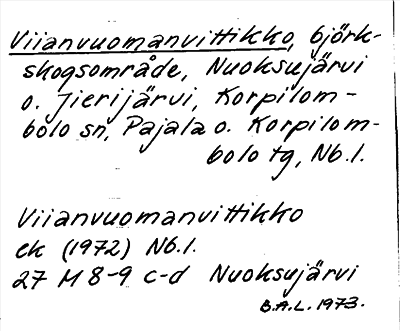 Viianvuomanvittikko, björk-
skogsområde, Nuoksujärvi
o. Jierijärvi, Korpilom-
bolo sn, Pajala o. Korpilom-
bolo tg, Nb.l.
Viianvuomanvittikko
ek (1972) Nb.l.
27 M 8-9 c-d Nuoksujärvi
B.A.L. 1973.